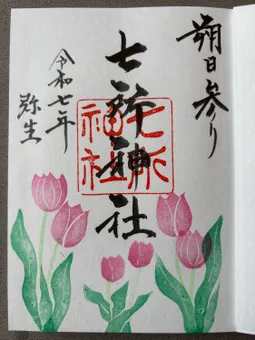 朔日参り
七所神社
七所
神社
令和七年
弥生